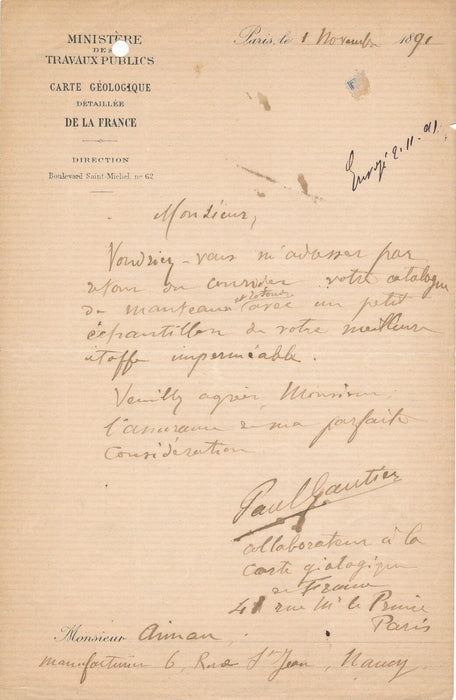 MINISTÈRE
DES
TRAVAUX PUBLICS
CARTE GÉOLOGIQUE
DÉTAILLÉE
DE LA FRANCE
DIRECTION
Boulevard Saint-Michel, no 62
Paris, le 1 Novembre 1891
Envoyé 2.11.91
Monsieur,
Voudriez-vous m'adresser par
retour du courrier votre catalogue
de manteaux avec un petit
échantillon de votre meilleure
étoffe imperméable.
Veuillez agréer Monsieur,
l'assurance de ma parfaite
considération
Paul Gautier
collaborateur à la
carte géologique
de France
41 rue Mr le Prince
Paris
Monsieur
manufacturier 6, Rue St Jean, Nancy.